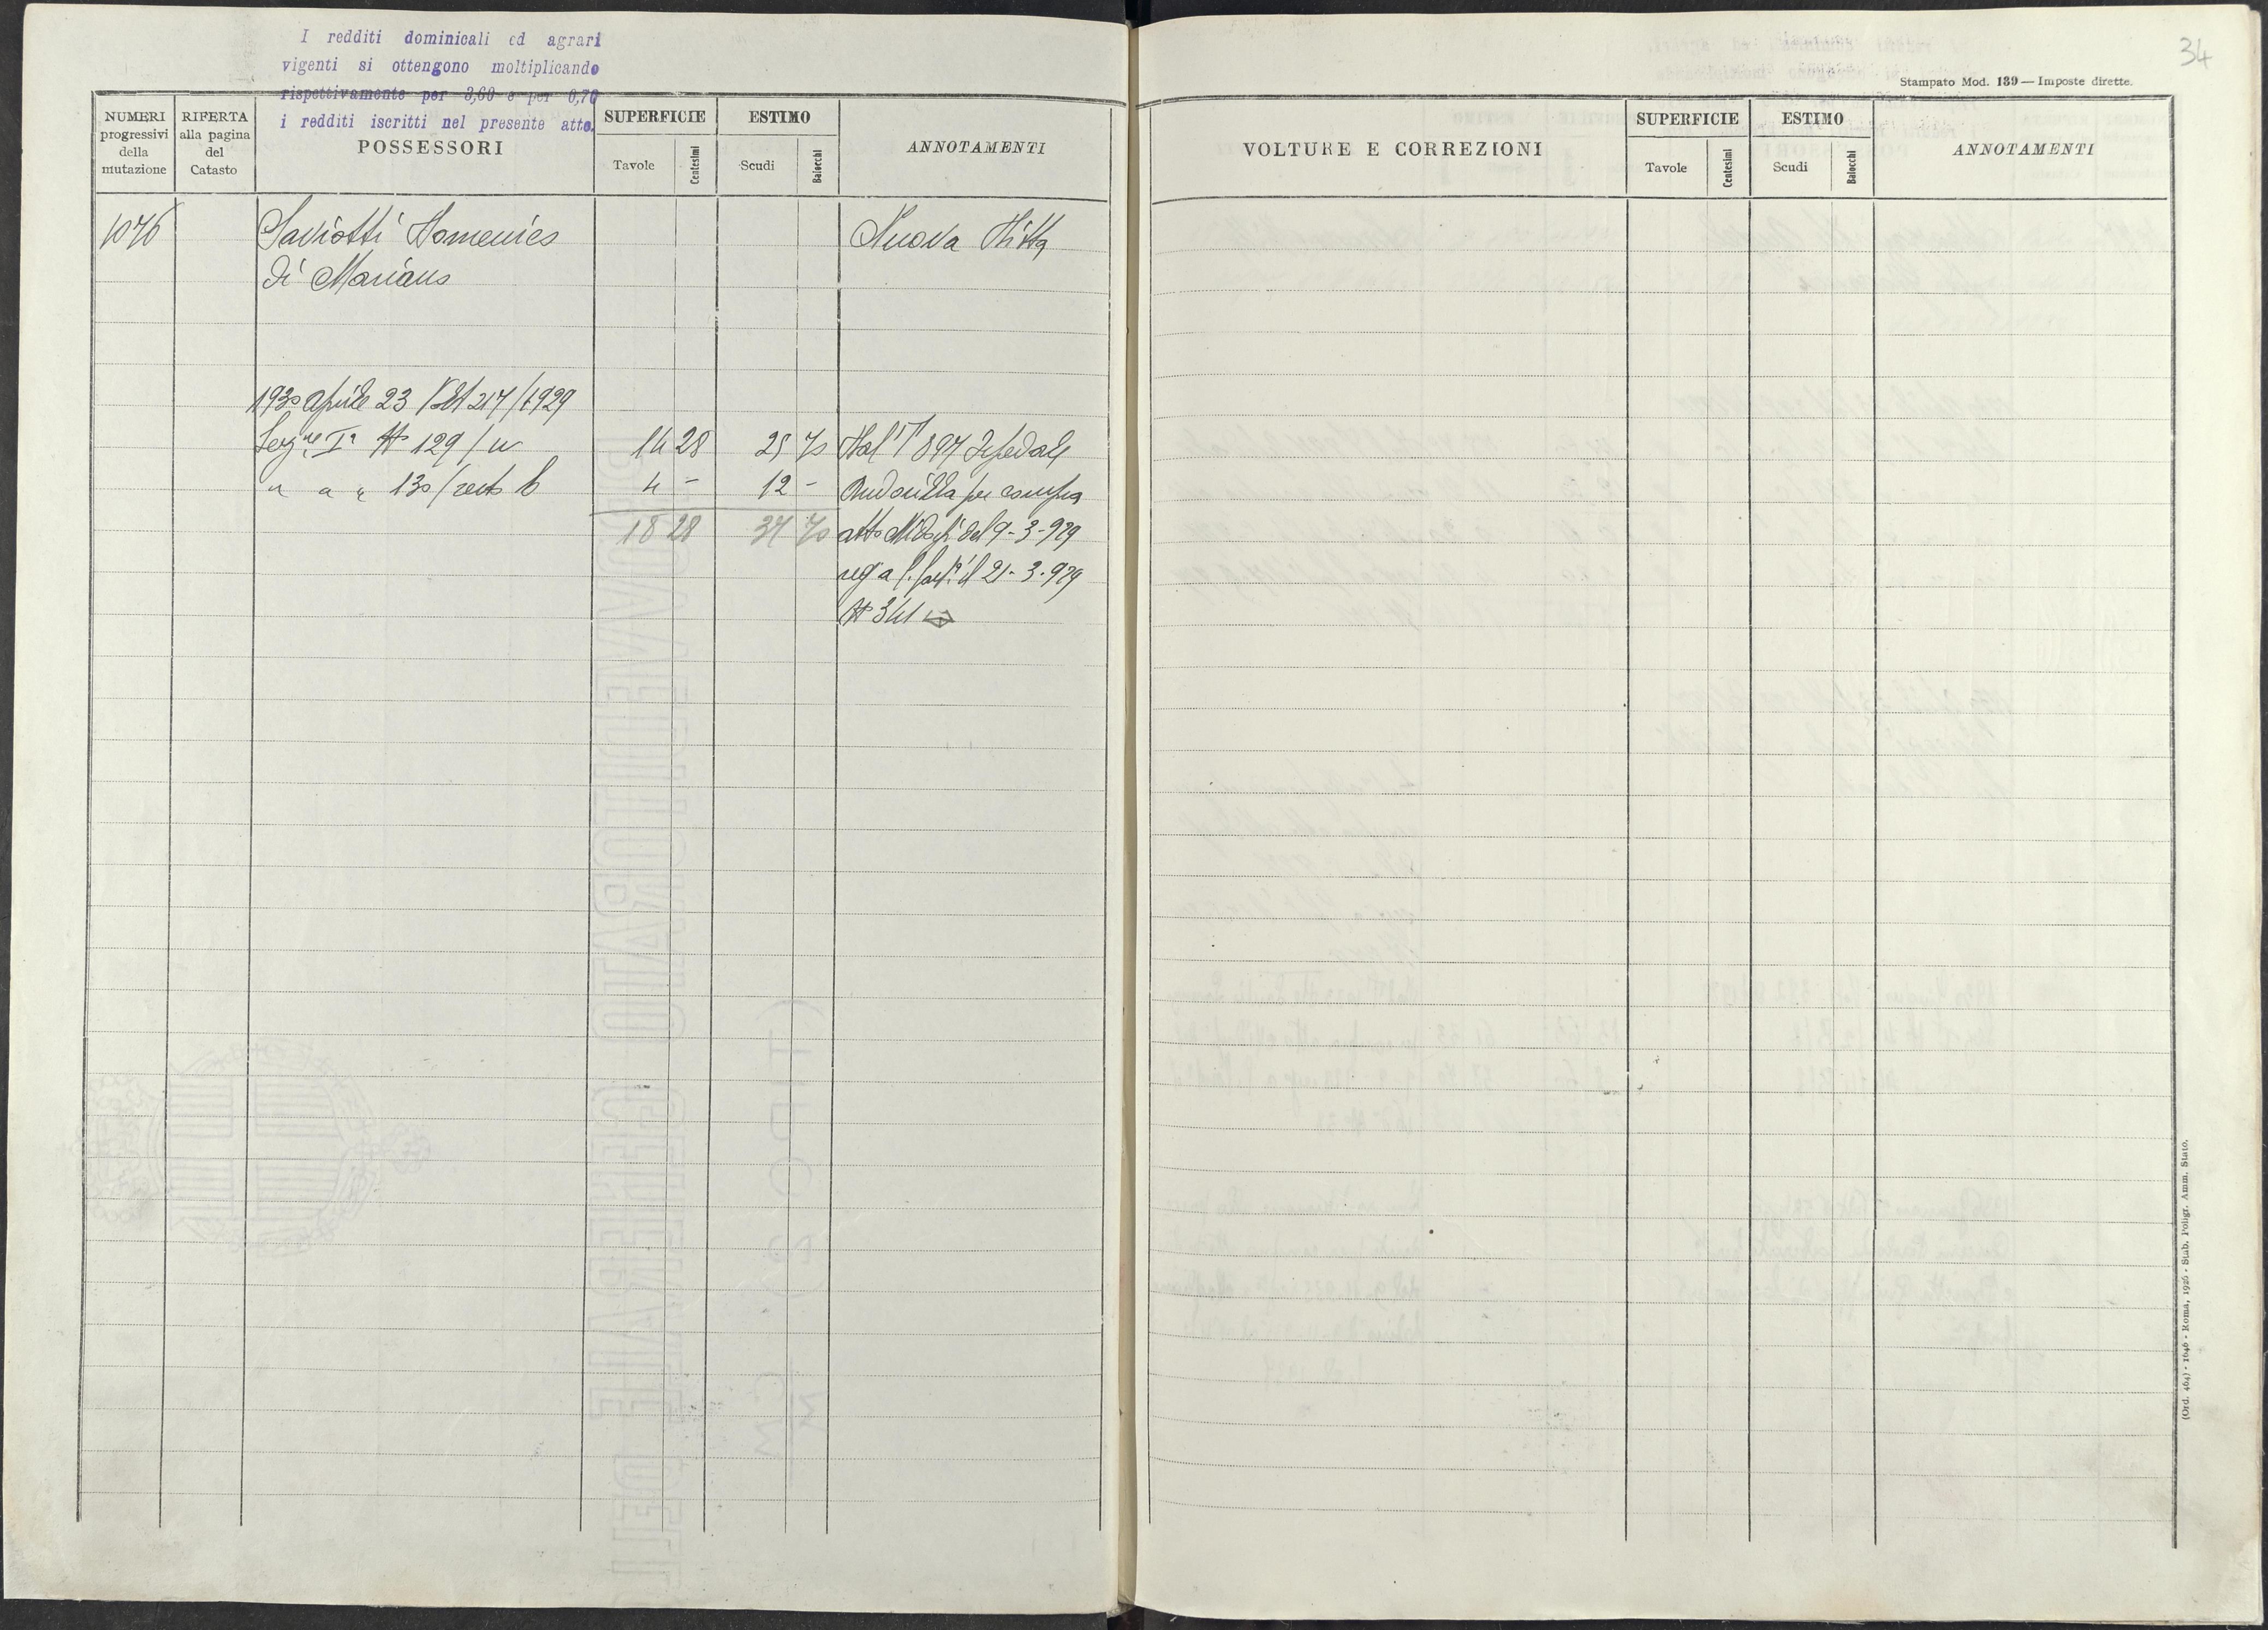 I redditi dominicali ed agrari
vigenti si ottengono moltiplicando
rispettivamente per 3,60 e per 0,70
i redditi iscritti nel presente atto.
NUMERI progressivi della mutazione
RIFERTA alla pagina del Catasto
POSSESSORI
SUPERFICIE
Tavole
Centesimi
ESTIMO
Scudi
Baiocchi
ANNOTAMENTI
1076
Saviotti Domenico
Nuova Ditta
di Mariano
1930 aprile 23 Vol 217/1929
Sez.ne I N 129/
14 28
25 70
Dal T 897
" " " 130/resto b
4 -
12 -
per compra
18 28
37 70
atto del 9-3-929
reg a il 21-3-929
N 341
34
Stampato Mod. 139 — Imposte dirette.
VOLTURE E CORREZIONI
SUPERFICIE
Tavole
Centesimi
ESTIMO
Scudi
Baiocchi
ANNOTAMENTI
(Ord. 464) - 1646 - Roma, 1926 - Stab. Poligr. Amm. Stato.